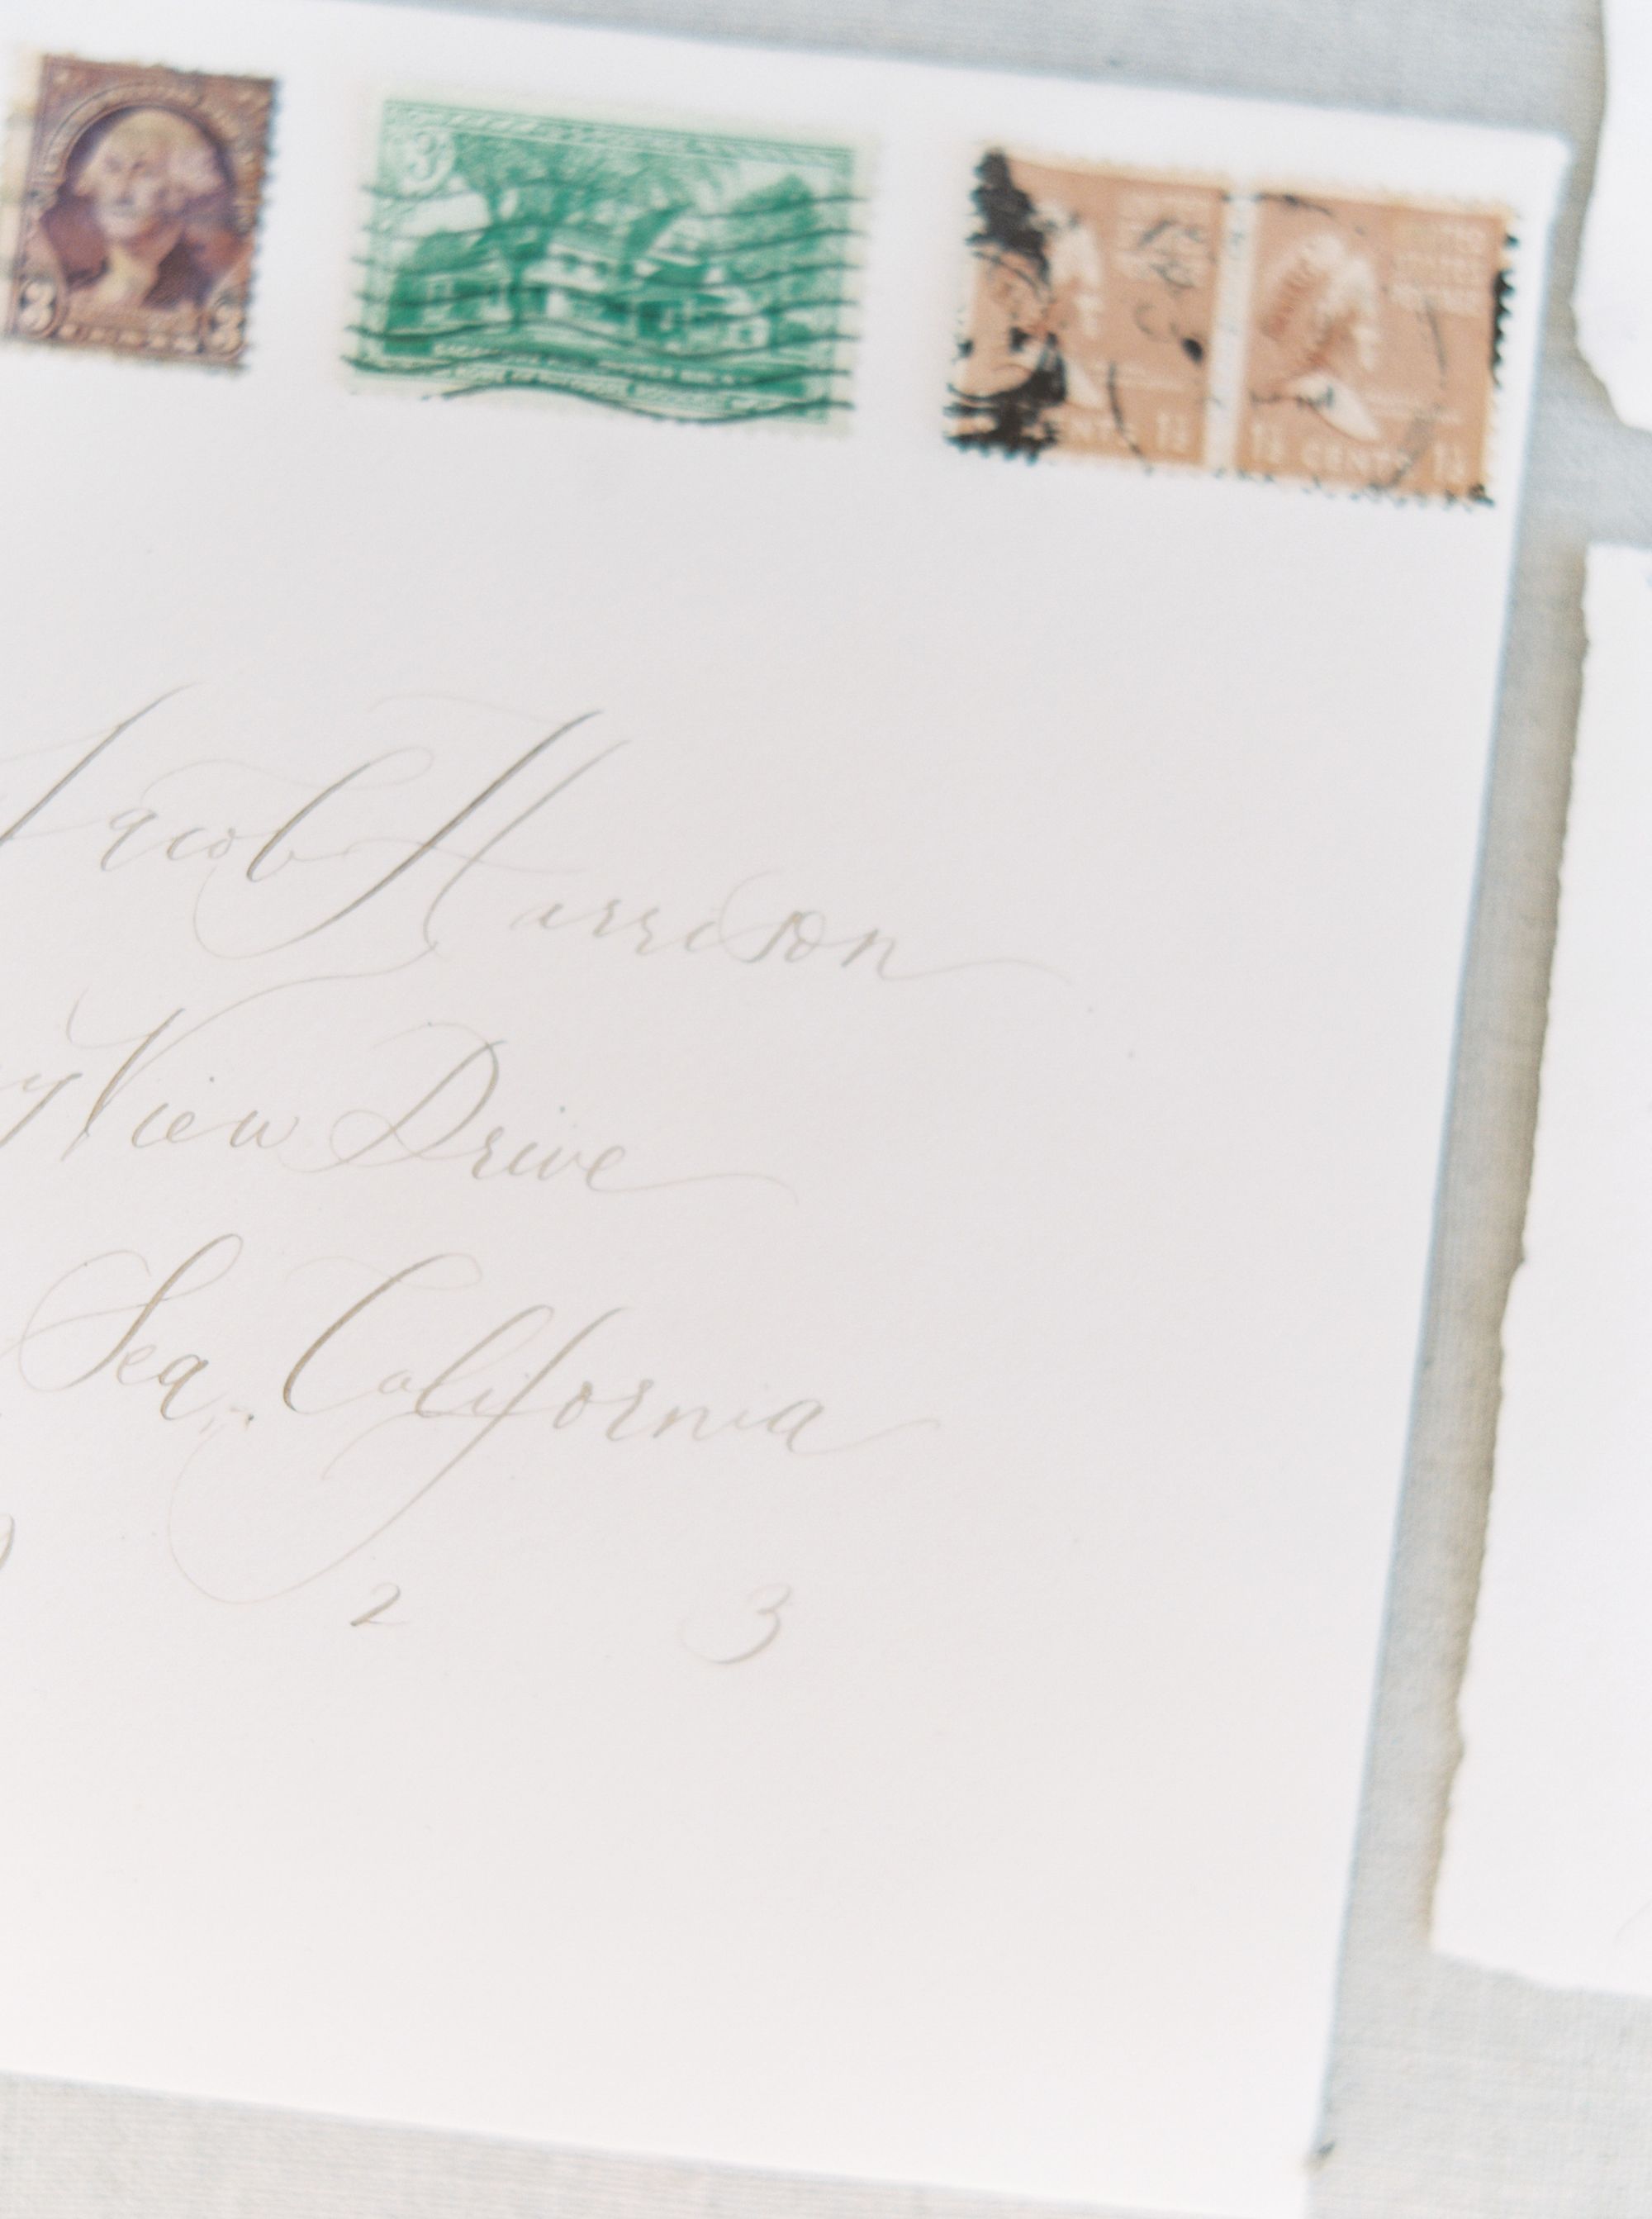 3 3
3
CENTS 1½ 1½ CENTS 1½
Jacob Harrison
View Drive
Sea, California
2 3